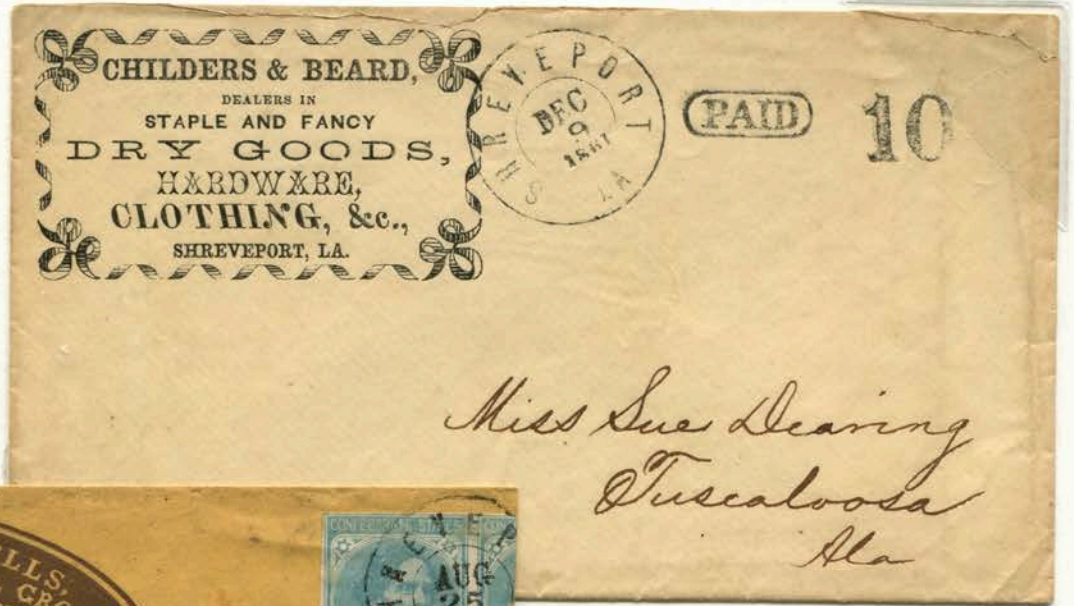 CHILDERS & BEARD,
DEALERS IN
STAPLE AND FANCY
DRY GOODS,
HARDWARE,
CLOTHING, &c.,
SHREVEPORT, LA.
SHREVEPORT LA
DEC
9
1861
PAID
10
Miss Sue Dearing
Tuscaloosa
Ala
AUG
25